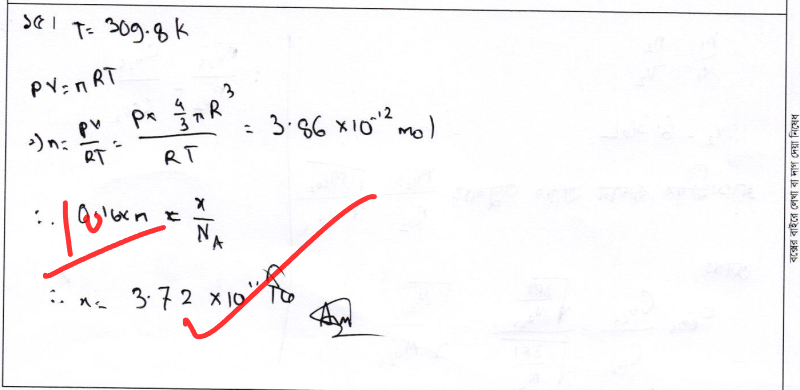 ১৫। T = 309.8 K
PV = nRT
⇒ n = PV/RT = (P × 4/3 πR³)/RT = 3.86 × 10⁻¹² mol
∴ 0.16 × n = x/N_A
∴ x = 3.72 × 10¹¹ টি Ans
10
বক্সের বাইরে লেখা বা দাগ দেয়া নিষেধ